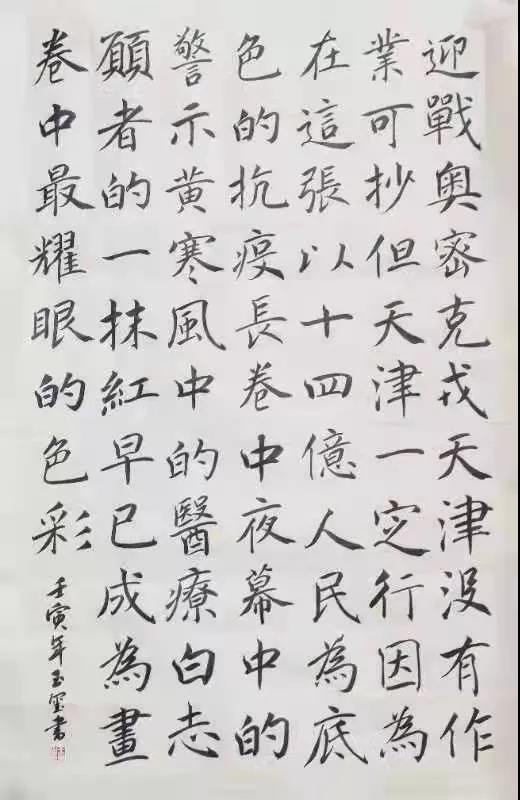 迎戰奧密克戎天津没有作
業可抄但天津一定行因為
在這張以十四億人民為底
色的抗疫長卷中夜幕中的
警示黄寒風中的醫療白志
願者的一抹紅早已成為畫
卷中最耀眼的色彩
壬寅年玉璽書